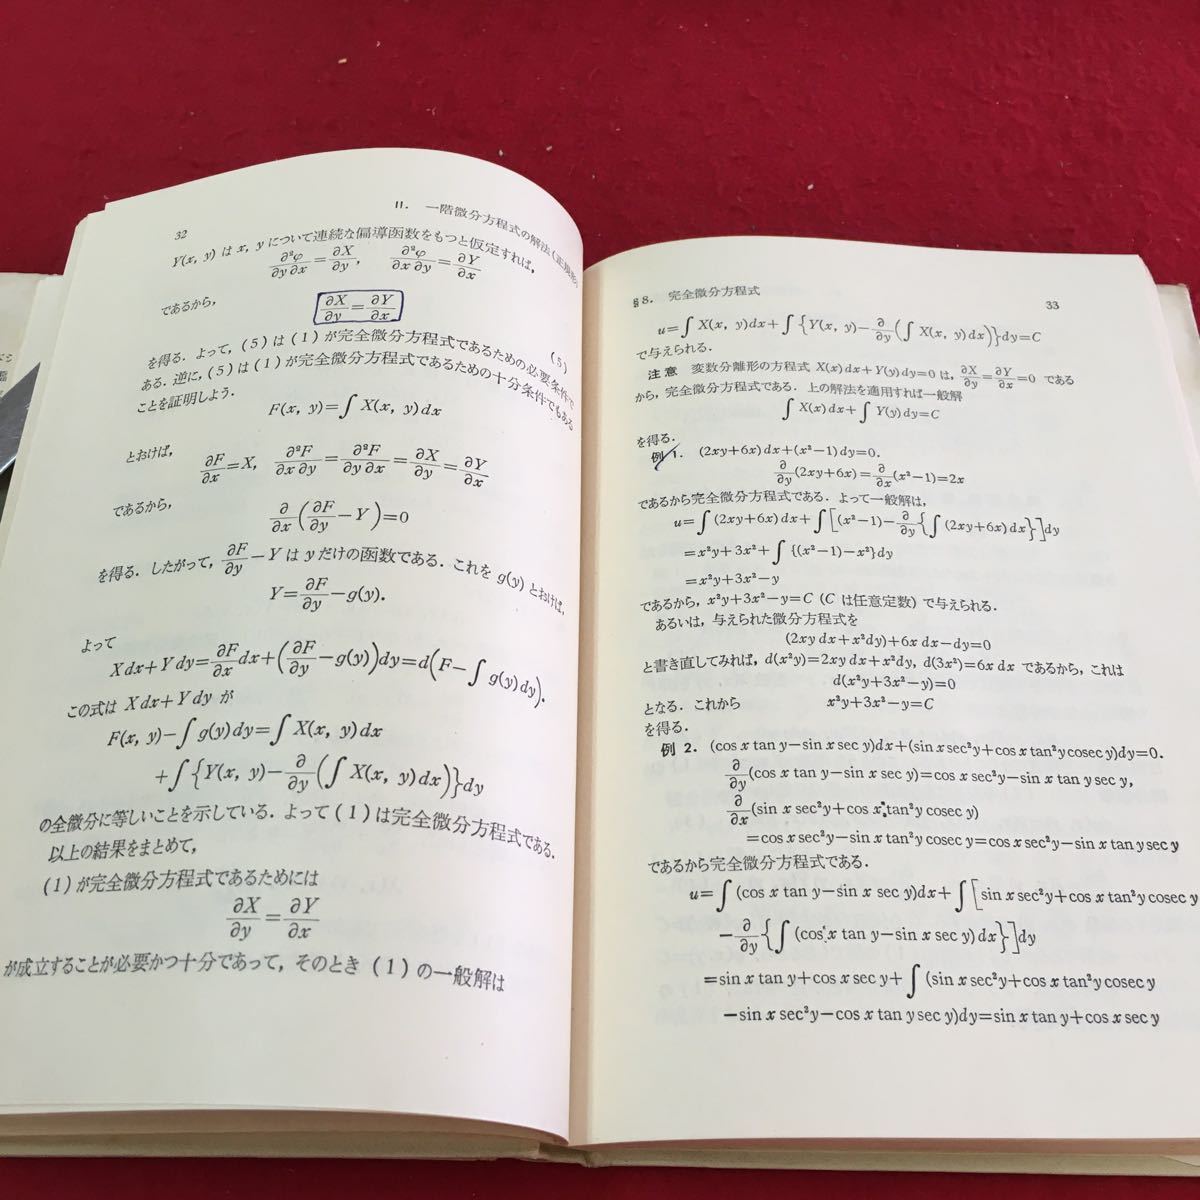 32
II. 一階微分方程式の解法(正規形)
Y(x, y) は x, y について連続な偏導函数をもつと仮定すれば,
∂²φ/∂y∂x = ∂X/∂y, ∂²φ/∂x∂y = ∂Y/∂x
であるから,
∂X/∂y = ∂Y/∂x (5)
を得る. よって, (5)は(1)が完全微分方程式であるための必要条件で
ある. 逆に, (5)は(1)が完全微分方程式であるための十分条件でもある
ことを証明しよう.
F(x, y)=∫X(x, y)dx
とおけば,
∂F/∂x = X, ∂²F/∂x∂y = ∂²F/∂y∂x = ∂X/∂y = ∂Y/∂x
であるから,
∂/∂x(∂F/∂y − Y)=0
を得る. したがって, ∂F/∂y − Y は y だけの函数である. これを g(y) とおけば,
Y = ∂F/∂y − g(y).
よって
X dx+Y dy = ∂F/∂x dx+(∂F/∂y − g(y))dy = d(F−∫g(y)dy).
この式は X dx+Y dy が
F(x, y)−∫g(y)dy=∫X(x, y)dx
+∫{Y(x, y)−∂/∂y(∫X(x, y)dx)}dy
の全微分に等しいことを示している. よって(1)は完全微分方程式である.
以上の結果をまとめて,
(1)が完全微分方程式であるためには
∂X/∂y = ∂Y/∂x
が成立することが必要かつ十分であって, そのとき(1)の一般解は
§8. 完全微分方程式
33
u=∫X(x, y)dx+∫{Y(x, y)−∂/∂y(∫X(x, y)dx)}dy=C
で与えられる.
注意 変数分離形の方程式 X(x)dx+Y(y)dy=0 は, ∂X/∂y = ∂Y/∂x = 0 である
から, 完全微分方程式である. 上の解法を適用すれば一般解
∫X(x)dx+∫Y(y)dy=C
を得る.
例 1. (2xy+6x)dx+(x²−1)dy=0.
∂/∂y(2xy+6x)=∂/∂x(x²−1)=2x
であるから完全微分方程式である. よって一般解は,
u=∫(2xy+6x)dx+∫[(x²−1)−∂/∂y{∫(2xy+6x)dx}]dy
=x²y+3x²+∫{(x²−1)−x²}dy
=x²y+3x²−y
であるから, x²y+3x²−y=C (C は任意定数) で与えられる.
あるいは, 与えられた微分方程式を
(2xy dx+x²dy)+6x dx−dy=0
と書き直してみれば, d(x²y)=2xy dx+x²dy, d(3x²)=6x dx であるから, これは
d(x²y+3x²−y)=0
となる. これから x²y+3x²−y=C
を得る.
例 2. (cos x tan y−sin x sec y)dx+(sin x sec²y+cos x tan²y cosec y)dy=0.
∂/∂y(cos x tan y−sin x sec y)=cos x sec²y−sin x tan y sec y,
∂/∂x(sin x sec²y+cos x tan²y cosec y)
=cos x sec²y−sin x tan²y cosec y=cos x sec²y−sin x tan y sec y
であるから完全微分方程式である.
u=∫(cos x tan y−sin x sec y)dx+∫[sin x sec²y+cos x tan²y cosec y
−∂/∂y{∫(cos x tan y−sin x sec y)dx}]dy
=sin x tan y+cos x sec y+∫(sin x sec²y+cos x tan²y cosec y
−sin x sec²y−cos x tan y sec y)dy=sin x tan y+cos x sec y